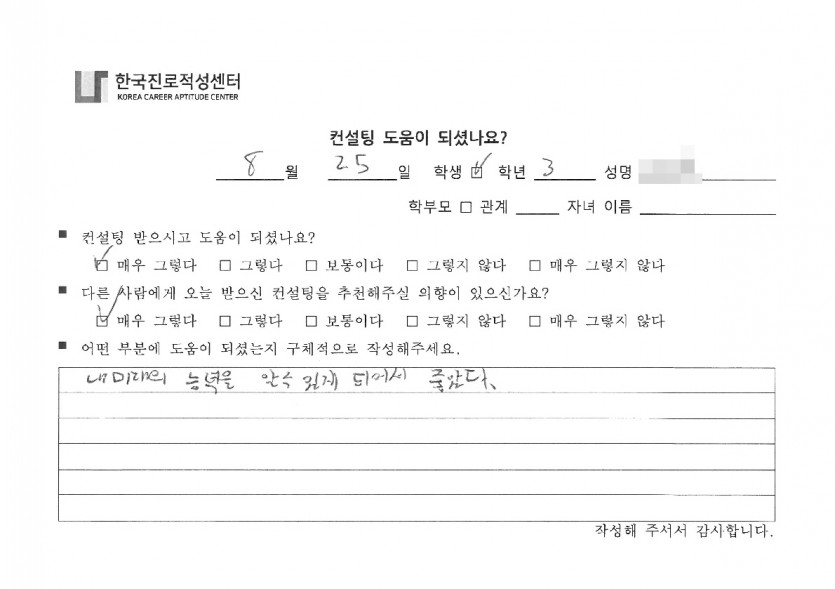 한국진로적성센터
KOREA CAREER APTITUDE CENTER
컨설팅 도움이 되셨나요?
8 월 25 일 학생 ☑ 학년 3 성명
학부모 □ 관계 자녀 이름
■ 컨설팅 받으시고 도움이 되셨나요?
☑ 매우 그렇다 □ 그렇다 □ 보통이다 □ 그렇지 않다 □ 매우 그렇지 않다
■ 다른 사람에게 오늘 받으신 컨설팅을 추천해주실 의향이 있으신가요?
☑ 매우 그렇다 □ 그렇다 □ 보통이다 □ 그렇지 않다 □ 매우 그렇지 않다
■ 어떤 부분에 도움이 되셨는지 구체적으로 작성해주세요.
내 미래의 능력을 알수 있게 되어서 좋았다.
작성해 주셔서 감사합니다.